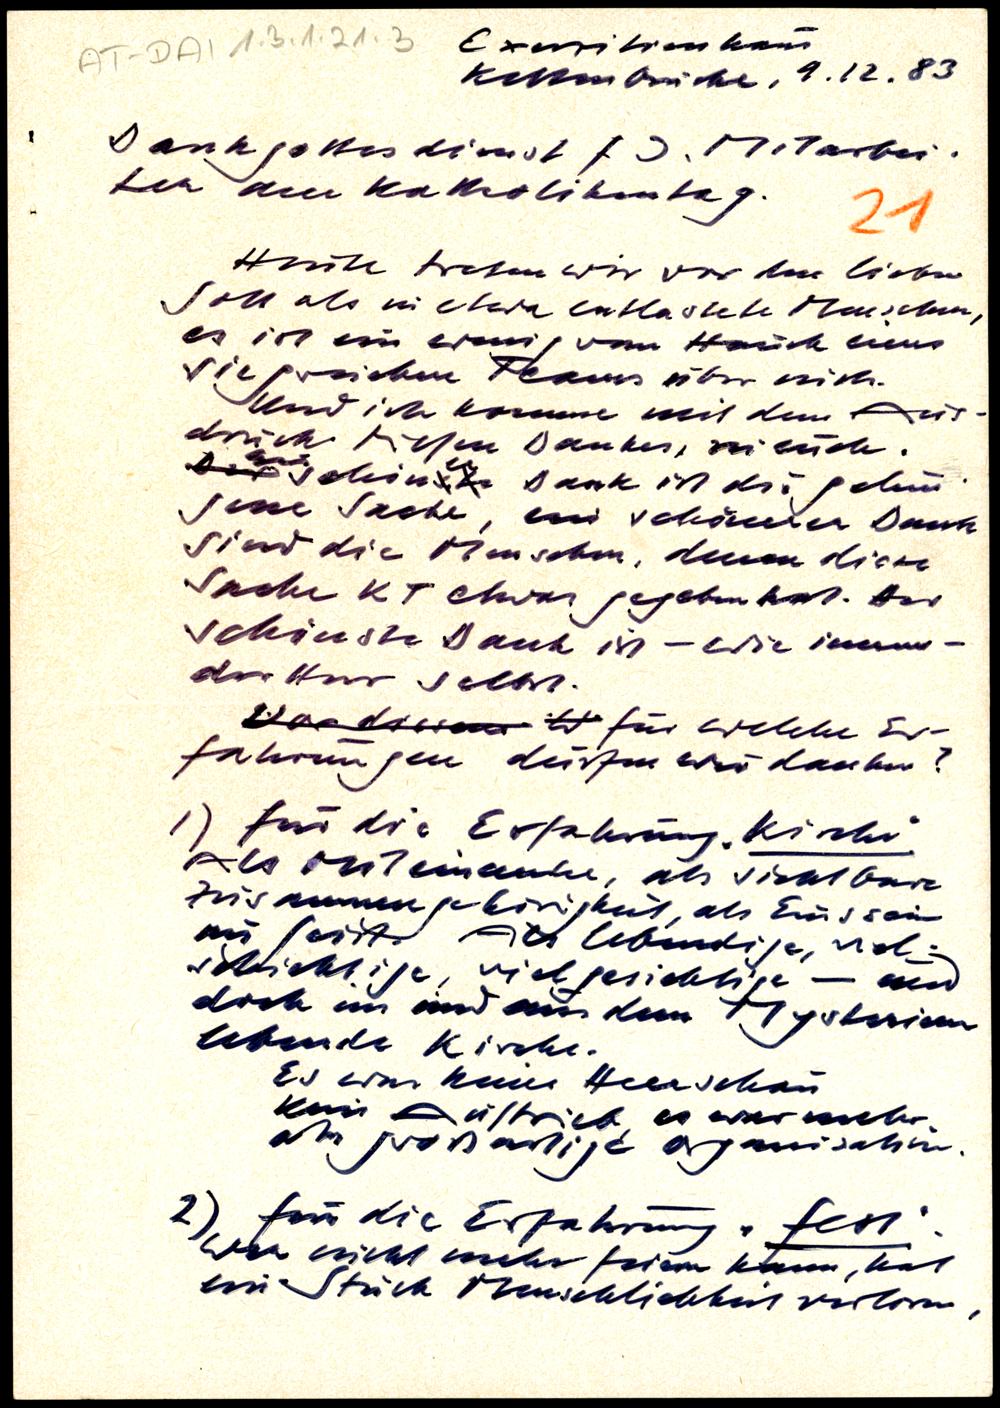 AT-DAI 1.3.1.21.3
Exerzitienhaus
Kettenbrücke, 9.12.83
Dankgottesdienst f. d. Mitarbei-
ter am Katholikentag.
21
Heute treten wir vor den lieben
Gott als in etwa entlastete Menschen,
es ist ein wenig vom Hauch eines
siegreichen Teams über uns.
Und ich komme mit dem Aus-
druck tiefen Dankes, an euch.
Der ein schöner Dank ist die gelun-
gene Sache, ein schönerer Dank
sind die Menschen, denen diese
Sache KT etwas gegeben hat. Der
schönste Dank ist – wie immer –
der Herr selbst.
Vor diesem für welche Er-
fahrungen dürfen wir danken?
1) für die Erfahrung „Kirche"
Als Miteinander, als sichtbare
Zusammengehörigkeit, als Eins sein
im Geist. Als lebendige, viel-
schichtige, vielgesichtige – und
doch in und aus dem Mysterium
lebende Kirche.
Es war keine Heerschau
kein Auftrieb, es war mehr
als großartige Organisation.
2) für die Erfahrung „Fest".
Wer nicht mehr feiern kann, hat
ein Stück Menschlichkeit verloren,